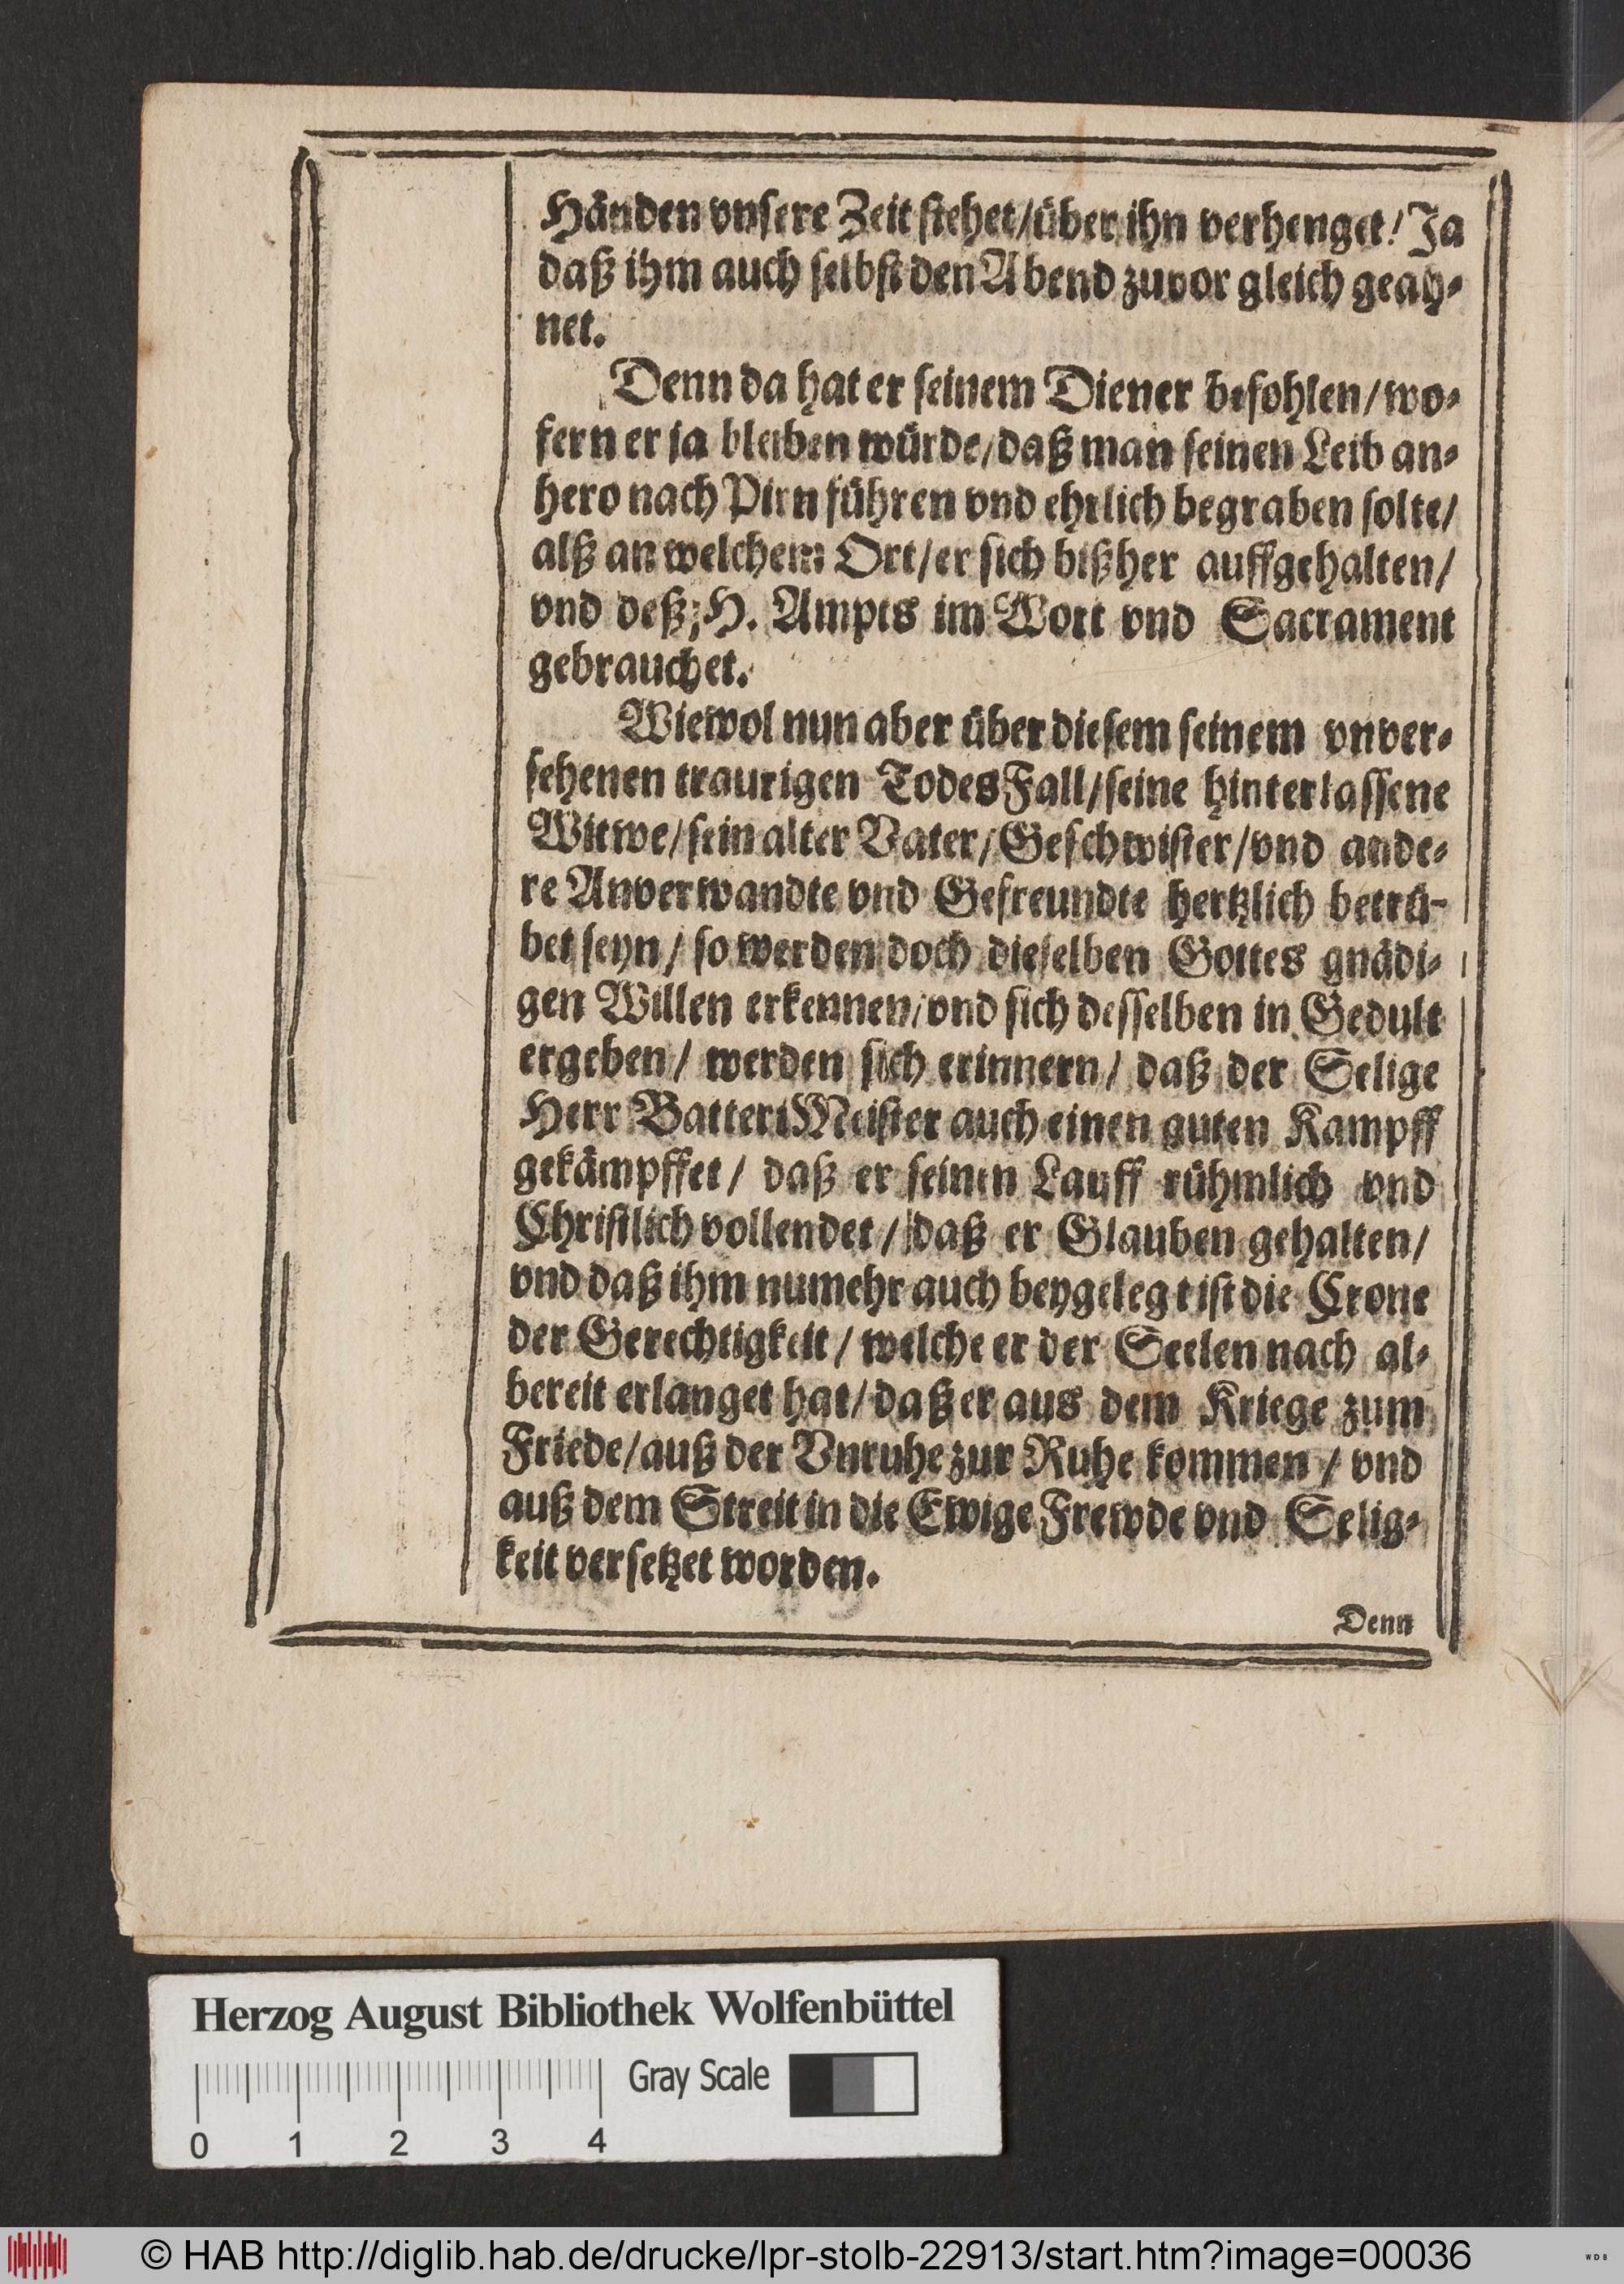 Händen vnsere Zeit stehet/über ihn verhenget! Ja
daß ihm auch selbst den Abend zuvor gleich geah-
net.
Denn da hat er seinem Diener befohlen/wo-
fern er ja bleiben würde/daß man seinen Leib an-
hero nach Pirn führen vnd ehrlich begraben solte/
alß an welchem Ort/er sich bißher auffgehalten/
vnd deß H. Ampts im Wort vnd Sacrament
gebrauchet.
Wiewol nun aber über diesem seinem vnver-
sehenen traurigen TodesFall/seine hinterlassene
Witwe/sein alter Vater/Geschwister/vnd ande-
re Anverwandte vnd Gefreundte hertzlich betrü-
bet seyn/ so werden doch dieselben Gottes gnädi-
gen Willen erkennen/vnd sich desselben in Gedult
ergeben/ werden sich erinnern/ daß der Selige
Herr BatteriMeister auch einen guten Kampff
gekämpffet/ daß er seinen Lauff rühmlich vnd
Christlich vollendet/ daß er Glauben gehalten/
vnd daß ihm numehr auch beygelegt ist die Crone
der Gerechtigkeit/ welche er der Seelen nach al-
bereit erlanget hat/daß er aus dem Kriege zum
Friede/auß der Vnruhe zur Ruhe kommen/ vnd
auß dem Streit in die Ewige Frewde vnd Selig-
keit versetzet worden.
Denn
Herzog August Bibliothek Wolfenbüttel
Gray Scale
0 1 2 3 4
© HAB http://diglib.hab.de/drucke/lpr-stolb-22913/start.htm?image=00036
WDB